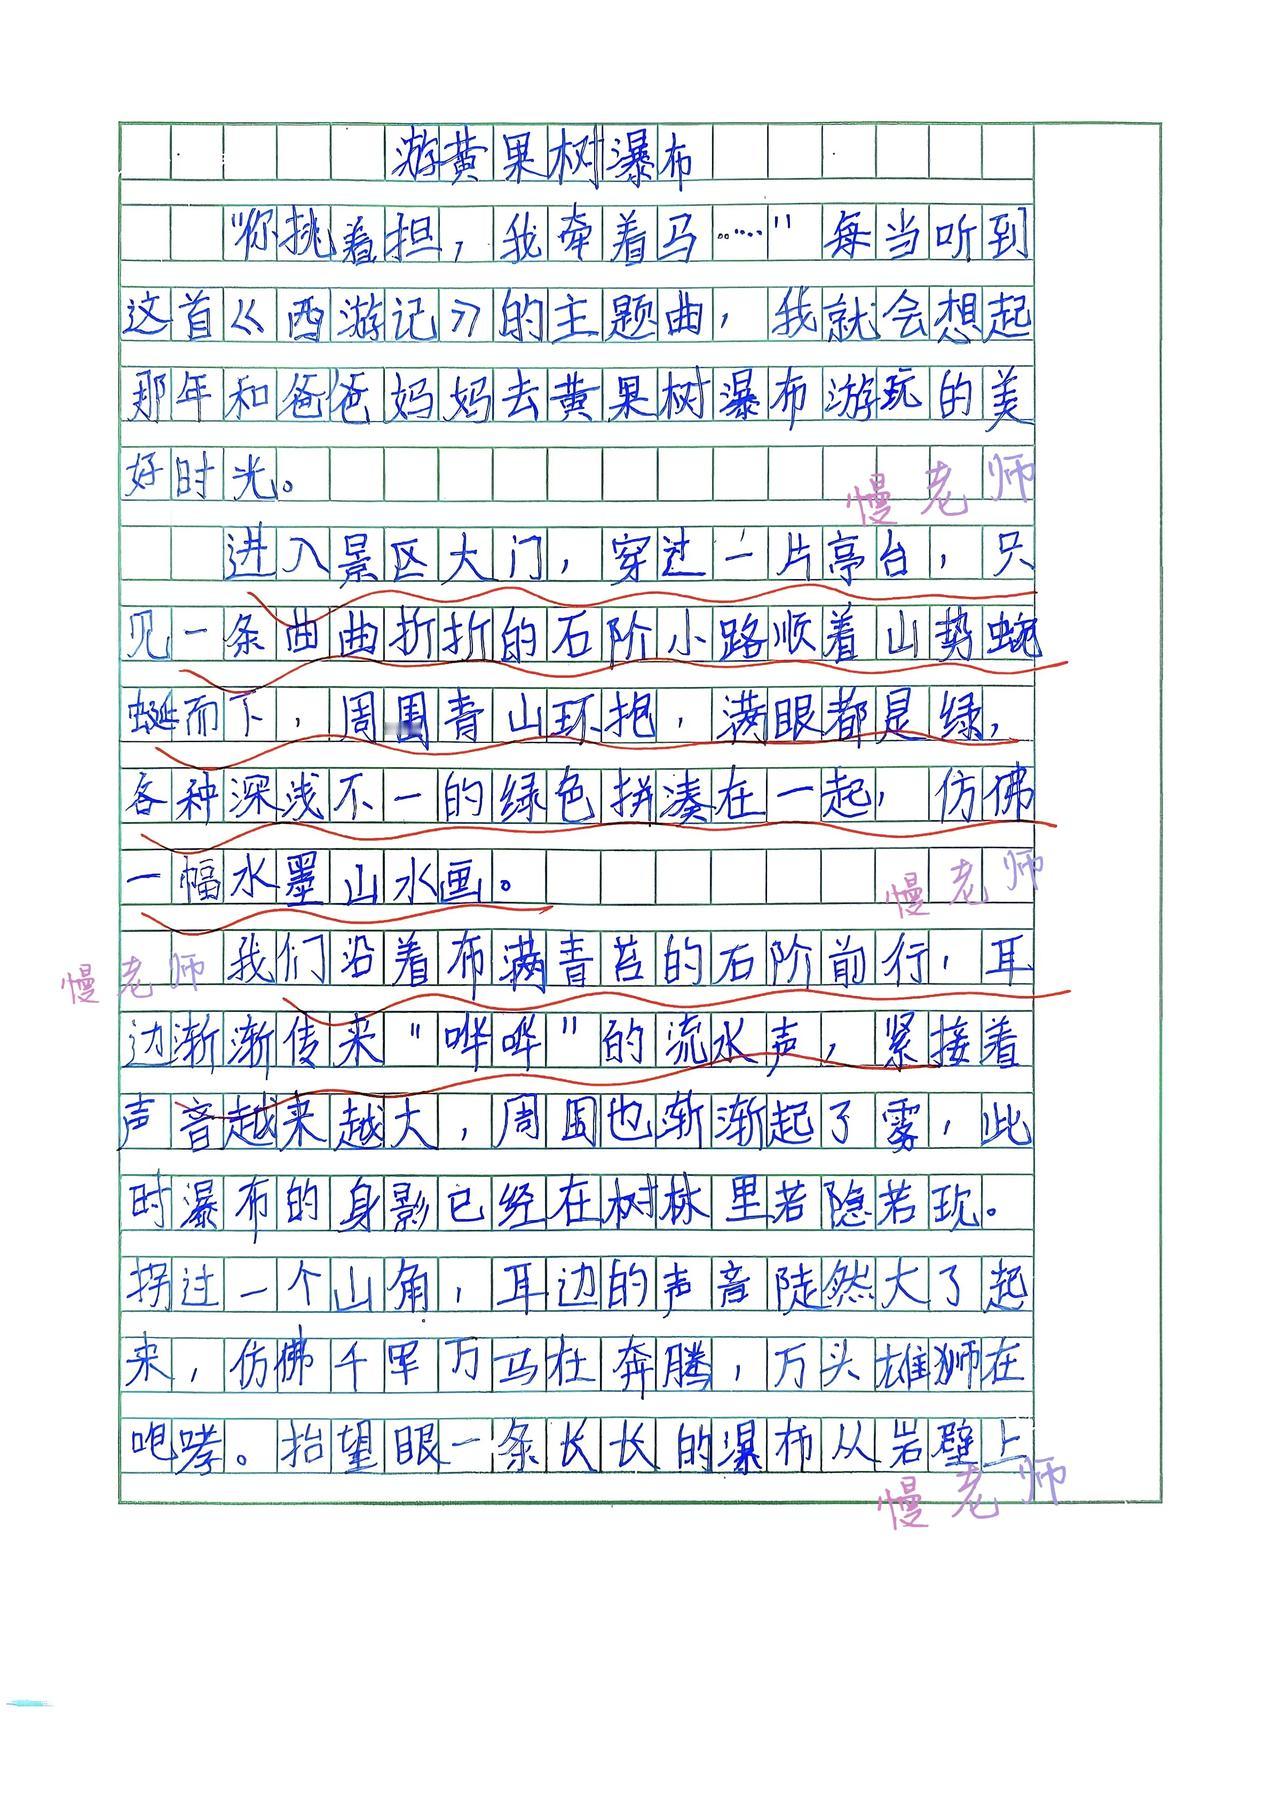 游黄果树瀑布
“你挑着担，我牵着马……”每当听到
这首《西游记》的主题曲，我就会想起
那年和爸爸妈妈去黄果树瀑布游玩的美
好时光。
慢老师
进入景区大门，穿过一片亭台，只
见一条曲曲折折的石阶小路顺着山势蜿
蜒而下，周围青山环抱，满眼都是绿，
各种深浅不一的绿色拼凑在一起，仿佛
一幅水墨山水画。
慢老师
慢老师
我们沿着布满青苔的石阶前行，耳
边渐渐传来“哗哗”的流水声，紧接着
声音越来越大，周围也渐渐起了雾，此
时瀑布的身影已经在树林里若隐若现。
拐过一个山角，耳边的声音陡然大了起
来，仿佛千军万马在奔腾，万头雄狮在
咆哮。抬望眼一条长长的瀑布从岩壁上
慢老师